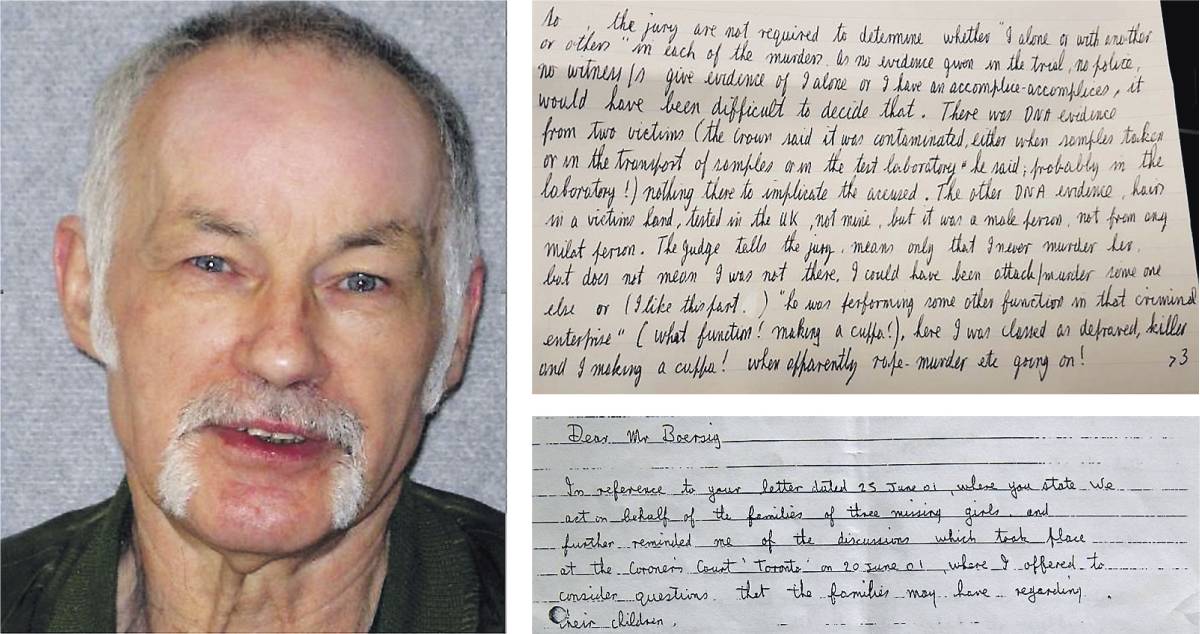 to , the jury are not required to determine whether "I alone or with another
or others" in each of the murders. As no evidence given in the trial, no police,
no witness/s give evidence of I alone or I have an accomplice-accomplices, it
would have been difficult to decide that. There was DNA evidence
from two victims (the Crown said it was contaminated, either when samples taken
or in the transport of samples or in the test laboratory " he said; probably in the
laboratory!) nothing there to implicate the accused. The other DNA evidence, hairs
in a victims hand, tested in the UK, not mine, but it was a male person, not from any
Milat person. The Judge tells the jury, means only that I never murder her,
but does not mean I was not there, I could have been attack/murder some one
else or (I like this part. ) "he was performing some other function in that criminal
enterprise" ( what function! making a cuppa!), here I was classed as depraved, killer
and I making a cuppa! when apparently rape-murder etc going on! >3
Dear Mr Boersig
In reference to your letter dated 25 June 01, where you state We
act on behalf of the families of three missing girls. and
further reminded me of the discussions which took place
at the Coroners Court 'Toronto' on 20 June 01, where I offered to
consider questions that the families may have regarding
their children.